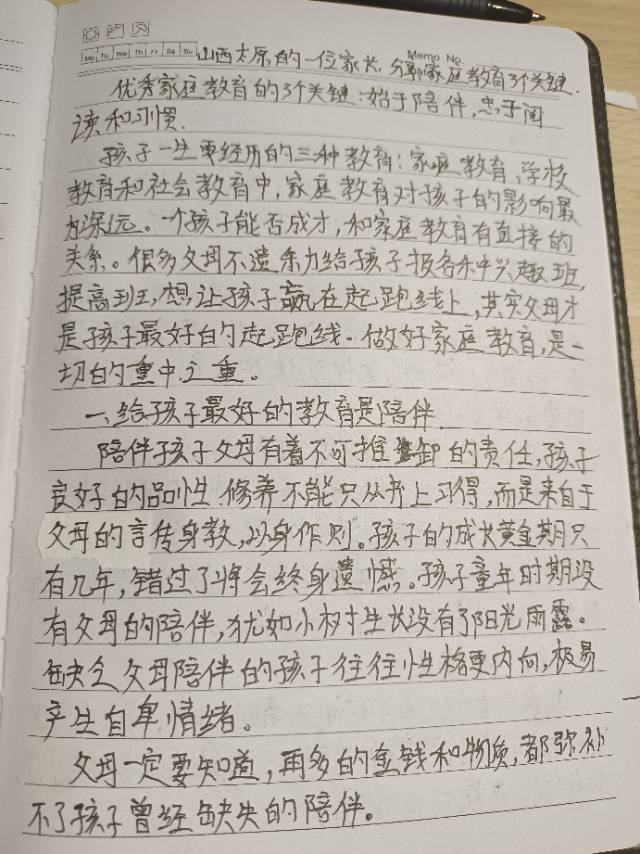 Mo Tu We Th Fr Sa Su
Memo No.
山西太原的一位家长,分享家庭教育3个关键.
优秀家庭教育的3个关键:始于陪伴,忠于阅
读和习惯.
孩子一生要经历的三种教育:家庭教育,学校
教育和社会教育中,家庭教育对孩子的影响最
为深远。一个孩子能否成才,和家庭教育有直接的
关系。很多父母不遗余力给孩子报各种兴趣班,
提高班,想让孩子赢在起跑线上,其实父母才
是孩子最好的起跑线.做好家庭教育,是一
切的重中之重。
一、给孩子最好的教育是陪伴.
陪伴孩子父母有着不可推卸的责任,孩子
良好的品性.修养不能只从书上习得,而是来自于
父母的言传身教,以身作则。孩子的成长黄金期只
有几年,错过了将会终身遗憾。孩子童年时期没
有父母的陪伴,犹如小树生长没有了阳光雨露。
缺乏父母陪伴的孩子往往性格更内向,极易
产生自卑情绪。
父母一定要知道,再多的金钱和物质,都弥补
不了孩子曾经缺失的陪伴。